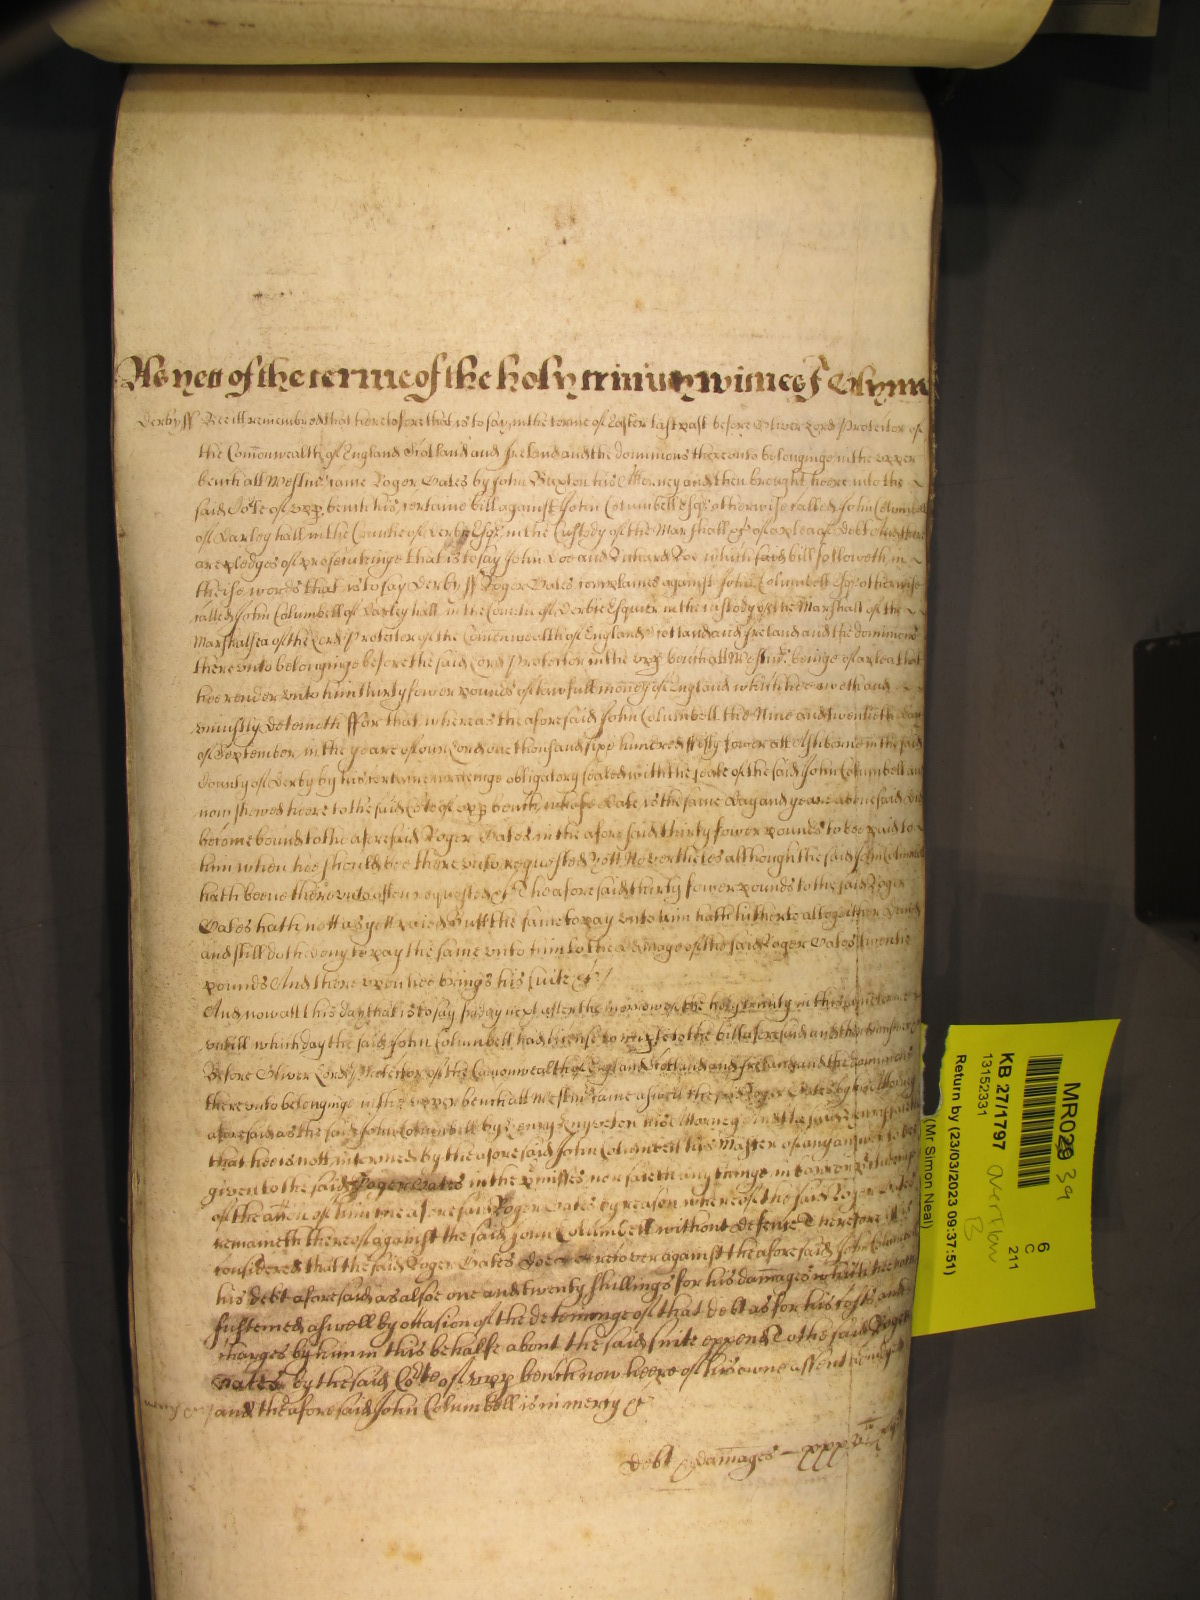 As yett of the terme of the holy trinity witnes J Glynn
Derby ss Bee itt remembred that heretofore that is to say in the terme of Easter last past before Oliver Lord Protector of
the Com̄onwealth of England Scotland and Ireland and the dominions thereunto belonginge in the upper
bench att Westmr came Roger Oates by John Buxton his Attorney and then brought heere into the
said Co͠te of upp bench his certaine bill against John Columbell Esqr otherwise called John Columbell
of Darley hall in the Countie of Derbie Esqr in the Custody of the Marshall &c of a plea of debt And there
are pledges of prosecutinge that is to say John Doe and Richard Roe which said bill followeth in
theise words that is to say Derby ss Roger Oates complaines against John Columbell Esqr otherwise
called John Columbell of Darley hall in the Countie of Derbie Esquier in the custody of the Marshall of the
Marshalsea of the Lord Protector of the Com̄onwealth of England Scotland and Ireland and the dominions
thereunto belonginge before the said Lord Protector in the upp bench att Westmr beinge of a plea that
hee render unto him thirty fower pounds of lawfull money of England which hee oweth and
uniustly deteineth ffor that whereas the aforesaid John Columbell the Nine and twentieth day
of September in the yeare of our Lord one thousand sixe hundred fifty fower att Ashborne in the said
County of Derby by his certaine writeinge obligatory sealed with the seale of the said John Columbell and
now shewed heere to the said Co͠te of upp bench whose date is the same day and yeare abovesaid did
become bound to the aforesaid Roger Oates in the aforesaid thirty fower pounds to bee paid to
him when hee should bee thereunto requested Yett Neverthelesse although the said John Columbell
hath beene thereunto often requested &c The aforesaid thirty fower pounds to the said Roger
Oates hath nott as yett paied Butt the same to pay unto him hath hitherto altogeither denied
and still doth deny to pay the same unto him to the damage of the said Roger Oates twentie
pounds And thereupon hee brings his suite &c
And now att this day that is to say friday next after the morrow of the holy trinity in this same terme
untill which day the said John Columbell had license to imparle to the bill aforesaid and then to answere
Before Oliver Lord Protector of the Com̄onwealth of England Scotland and Ireland and the dominions
thereunto belonginge in the upper bench att Westmr came aswell the said Roger Oates by his Attorney
aforesaid as the said John Columbell by Henry Edgerton his Attorney And the said
that hee is nott informed by the aforesaid John Columbell his Master of any answer to bee
given to the said Roger Oates in the p̃misses nor saieth any thinge in barr or
of the acc̃on of him the aforesaid Roger Oates by reason whereof the said Roger Oates
remaineth thereof against the said John Columbell without defense Therefore itt is
considered that the said Roger Oates doe recover against the aforesaid John Columbell
his debt aforesaid as alsoe one and twenty shillings for his dam̄ages which hee hath
susteined aswell by occasion of the deteininge of that debt as for his costs and
charges by him in this behalfe about the said suite expend To the said Roger
Oates by the said Co͠te of upp bench now heere of his owne assent
and the aforesaid John Columbell is in mercy &c
debt & dam̄ages
MR029
39
6
C
211
KB 27/1797
13152331
Overflow
B
Return by (23/03/2023 09:37:51)
(Mr Simon Neal)